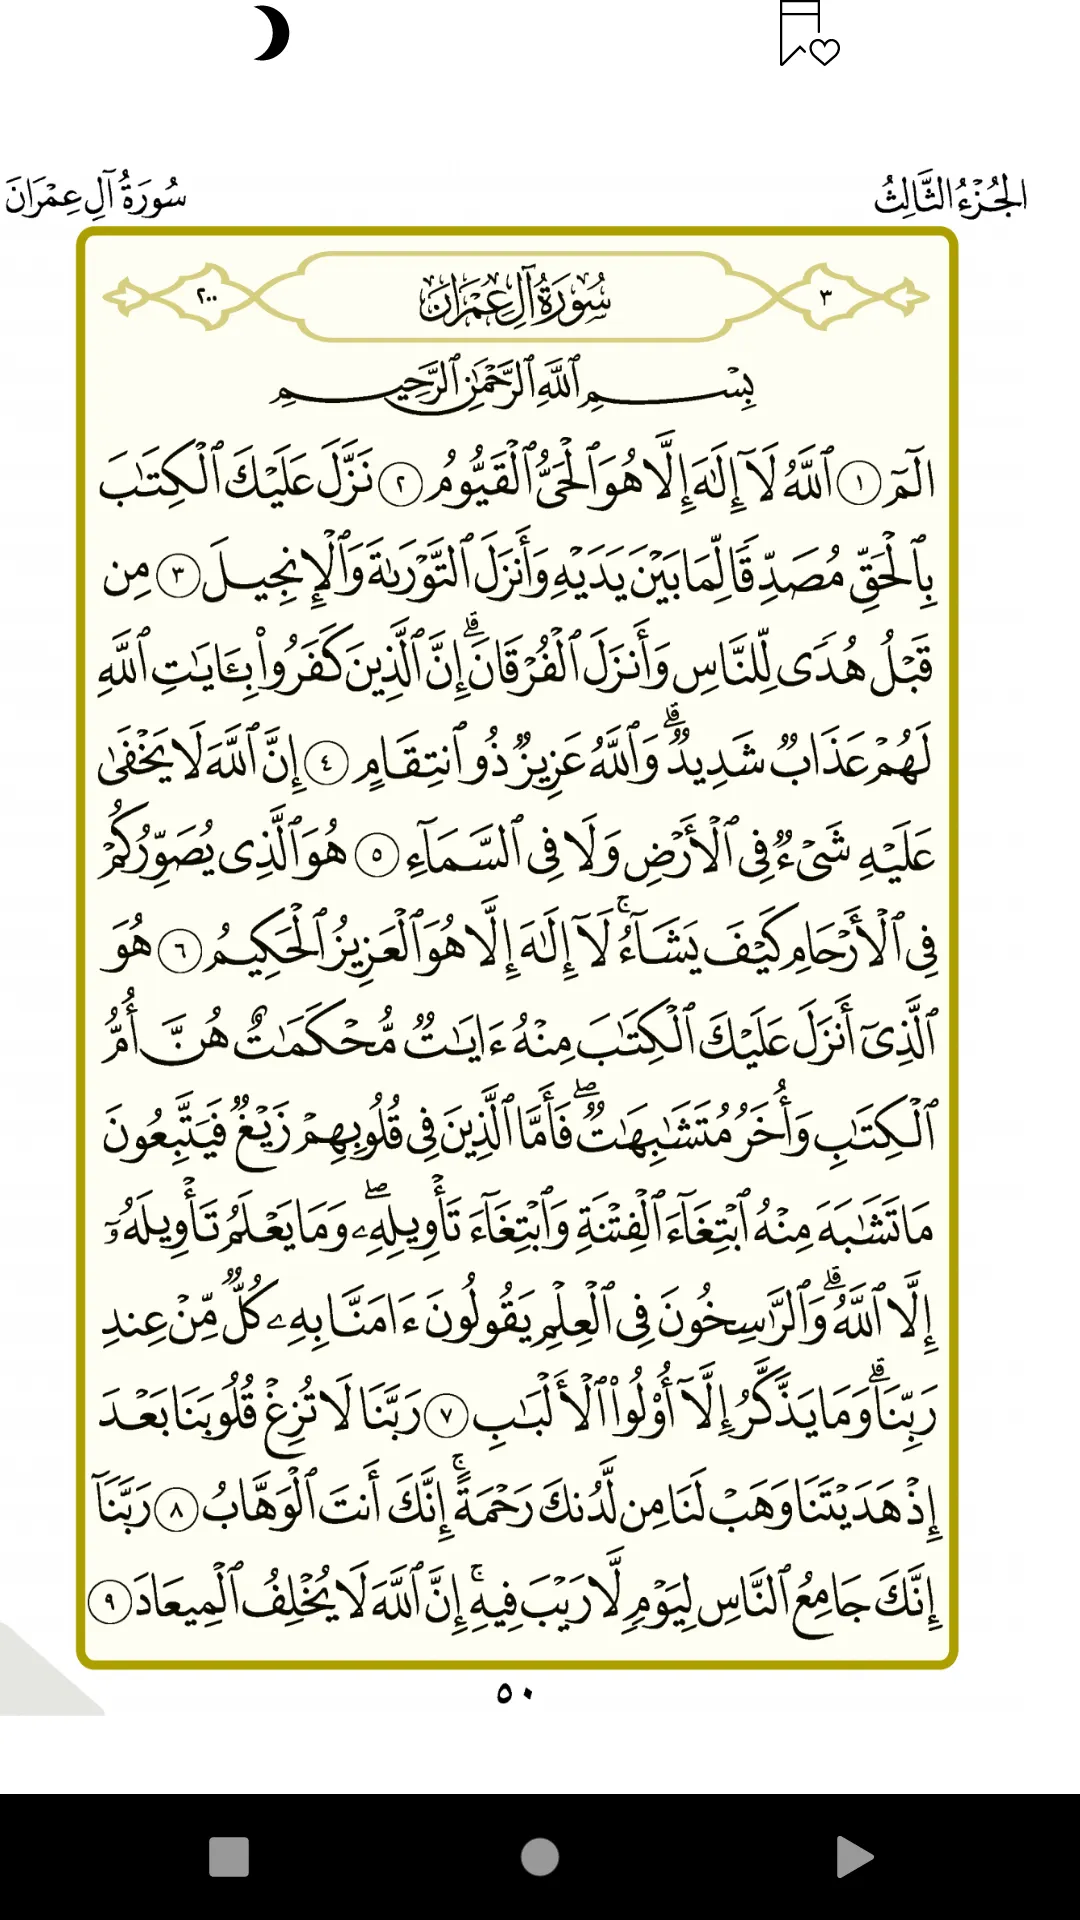 الجُزْءُ الثَّالِثُ
سُورَةُ آلِ عِمْرَانَ
٣
سُورَةُ آلِ عِمْرَانَ
٢٠٠
بِسْمِ ٱللَّهِ ٱلرَّحْمَٰنِ ٱلرَّحِيمِ
الٓمٓ ١ ٱللَّهُ لَآ إِلَٰهَ إِلَّا هُوَ ٱلْحَىُّ ٱلْقَيُّومُ ٢ نَزَّلَ عَلَيْكَ ٱلْكِتَٰبَ
بِٱلْحَقِّ مُصَدِّقًا لِّمَا بَيْنَ يَدَيْهِ وَأَنزَلَ ٱلتَّوْرَىٰةَ وَٱلْإِنجِيلَ ٣ مِن
قَبْلُ هُدًى لِّلنَّاسِ وَأَنزَلَ ٱلْفُرْقَانَۗ إِنَّ ٱلَّذِينَ كَفَرُوا۟ بِـَٔايَٰتِ ٱللَّهِ
لَهُمْ عَذَابٌ شَدِيدٌۗ وَٱللَّهُ عَزِيزٌ ذُو ٱنتِقَامٍ ٤ إِنَّ ٱللَّهَ لَا يَخْفَىٰ
عَلَيْهِ شَىْءٌ فِى ٱلْأَرْضِ وَلَا فِى ٱلسَّمَآءِ ٥ هُوَ ٱلَّذِى يُصَوِّرُكُمْ
فِى ٱلْأَرْحَامِ كَيْفَ يَشَآءُۚ لَآ إِلَٰهَ إِلَّا هُوَ ٱلْعَزِيزُ ٱلْحَكِيمُ ٦ هُوَ
ٱلَّذِىٓ أَنزَلَ عَلَيْكَ ٱلْكِتَٰبَ مِنْهُ ءَايَٰتٌ مُّحْكَمَٰتٌ هُنَّ أُمُّ
ٱلْكِتَٰبِ وَأُخَرُ مُتَشَٰبِهَٰتٌۖ فَأَمَّا ٱلَّذِينَ فِى قُلُوبِهِمْ زَيْغٌ فَيَتَّبِعُونَ
مَا تَشَٰبَهَ مِنْهُ ٱبْتِغَآءَ ٱلْفِتْنَةِ وَٱبْتِغَآءَ تَأْوِيلِهِۦۖ وَمَا يَعْلَمُ تَأْوِيلَهُۥٓ
إِلَّا ٱللَّهُۗ وَٱلرَّٰسِخُونَ فِى ٱلْعِلْمِ يَقُولُونَ ءَامَنَّا بِهِۦ كُلٌّ مِّنْ عِندِ
رَبِّنَاۗ وَمَا يَذَّكَّرُ إِلَّآ أُو۟لُوا۟ ٱلْأَلْبَٰبِ ٧ رَبَّنَا لَا تُزِغْ قُلُوبَنَا بَعْدَ
إِذْ هَدَيْتَنَا وَهَبْ لَنَا مِن لَّدُنكَ رَحْمَةًۚ إِنَّكَ أَنتَ ٱلْوَهَّابُ ٨ رَبَّنَآ
إِنَّكَ جَامِعُ ٱلنَّاسِ لِيَوْمٍ لَّا رَيْبَ فِيهِۚ إِنَّ ٱللَّهَ لَا يُخْلِفُ ٱلْمِيعَادَ ٩
٥٠